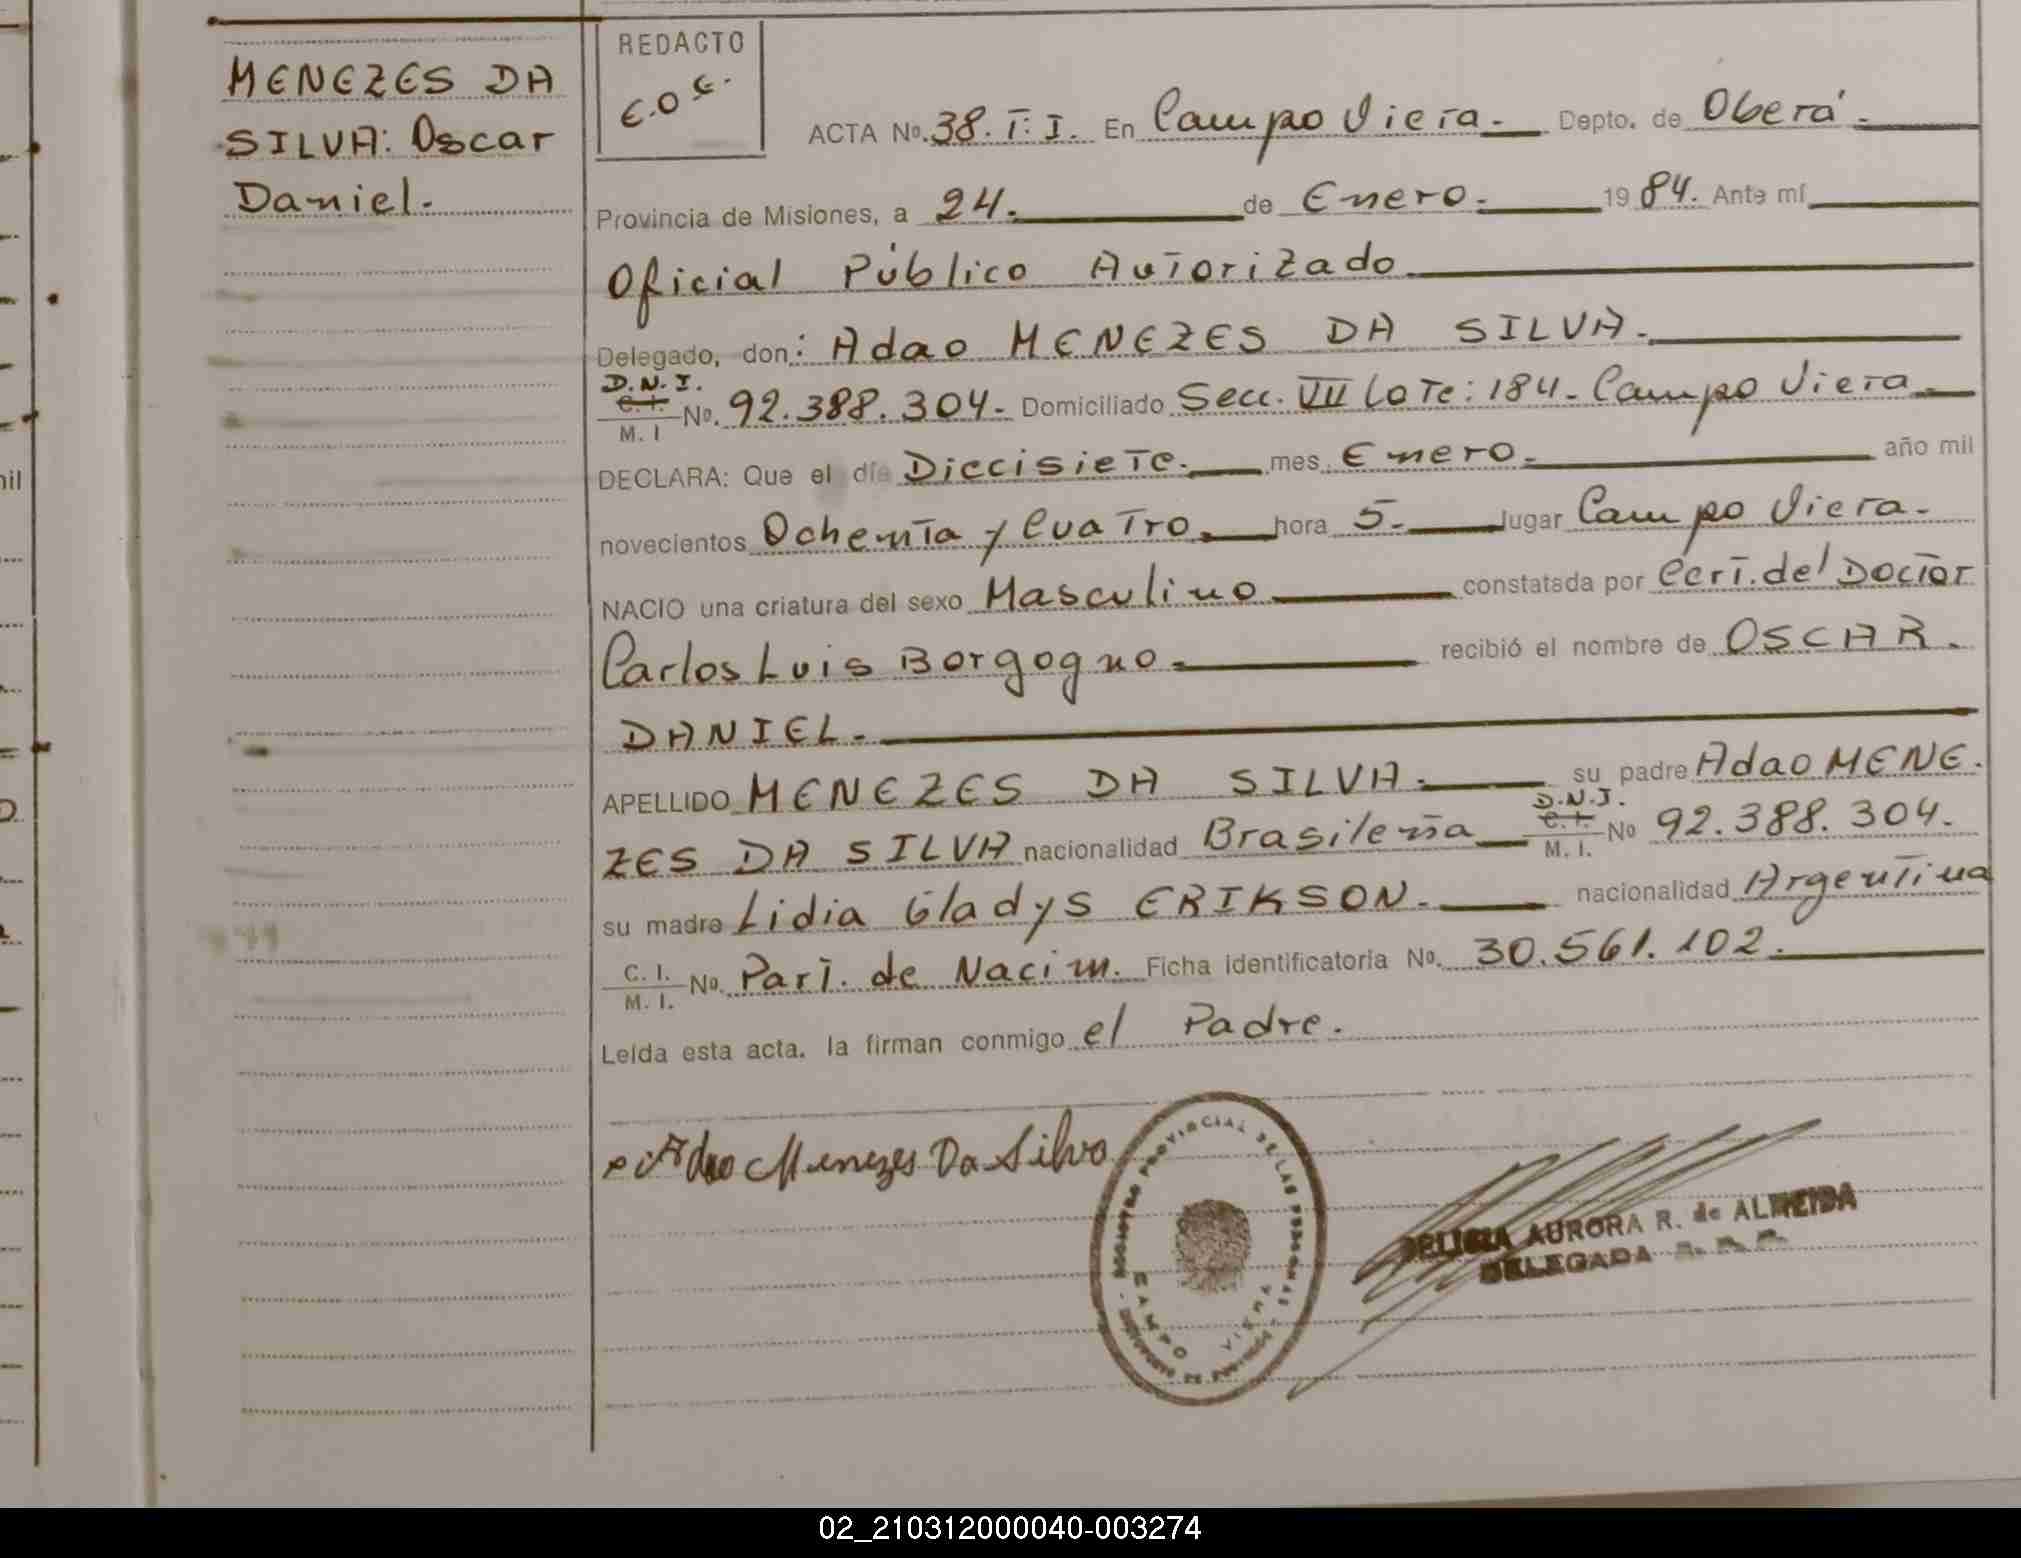 MENEZES DA
SILVA: Oscar
Daniel.
REDACTO
E.O.E.
ACTA Nº. 38. T: I. En Campo Viera. Depto. de Oberá.
Provincia de Misiones, a 24. de Enero. 1984. Ante mí
Oficial Público Autorizado
Delegado, don: Adao MENEZES DA SILVA.
D.N.I.
C. I.
M. I Nº. 92.388.304. Domiciliado Secc. VII Lote: 184. Campo Viera
DECLARA: Que el día Diecisiete. mes Enero. año mil
novecientos Ochenta y Cuatro. hora 5. lugar Campo Viera.
NACIO una criatura del sexo Masculino constatada por Cert. del Doctor
Carlos Luis Borgogno. recibió el nombre de OSCAR.
DANIEL.
APELLIDO MENEZES DA SILVA. su padre Adao MENE.
ZES DA SILVA nacionalidad Brasileña D.N.I. C. I. M. I. Nº 92.388.304.
su madre Lidia Gladys ERIKSON. nacionalidad Argentina
C. I.
M. I. Nº. Part. de Nacim. Ficha identificatoria Nº. 30.561.102.
Leída esta acta. la firman conmigo el Padre.
Adao Menezes Da Silva
REGISTRO PROVINCIAL DE LAS PERSONAS
CAMPO VIERA
AURORA R. de ALMEIDA
DELEGADA
02_210312000040-003274
nil